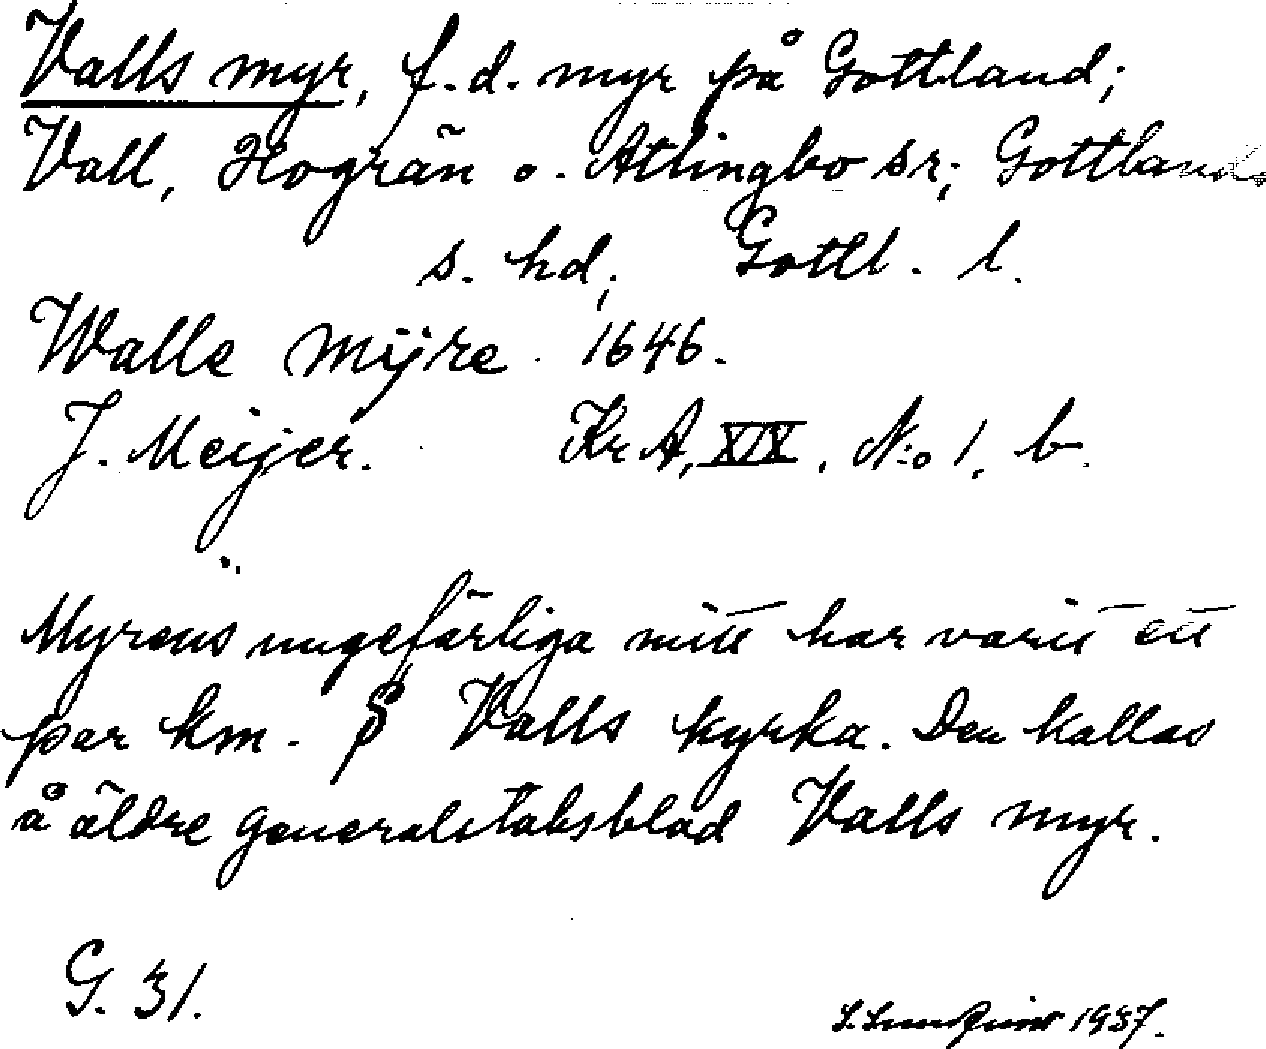 Valls myr, f.d. myr på Gottland;
Vall, Hogrän o. Atlingbo sr; Gottlands
s. hd; Gottl. l.
Walle Mÿre 1646.
J. Meijer. KrA, XIX, N:o 1, b.
Myrens ungefärliga mitt har varit ett
par km. S Valls kyrka. Den kallas
å äldre generalstabsblad Valls myr.
G. 31.
1937.